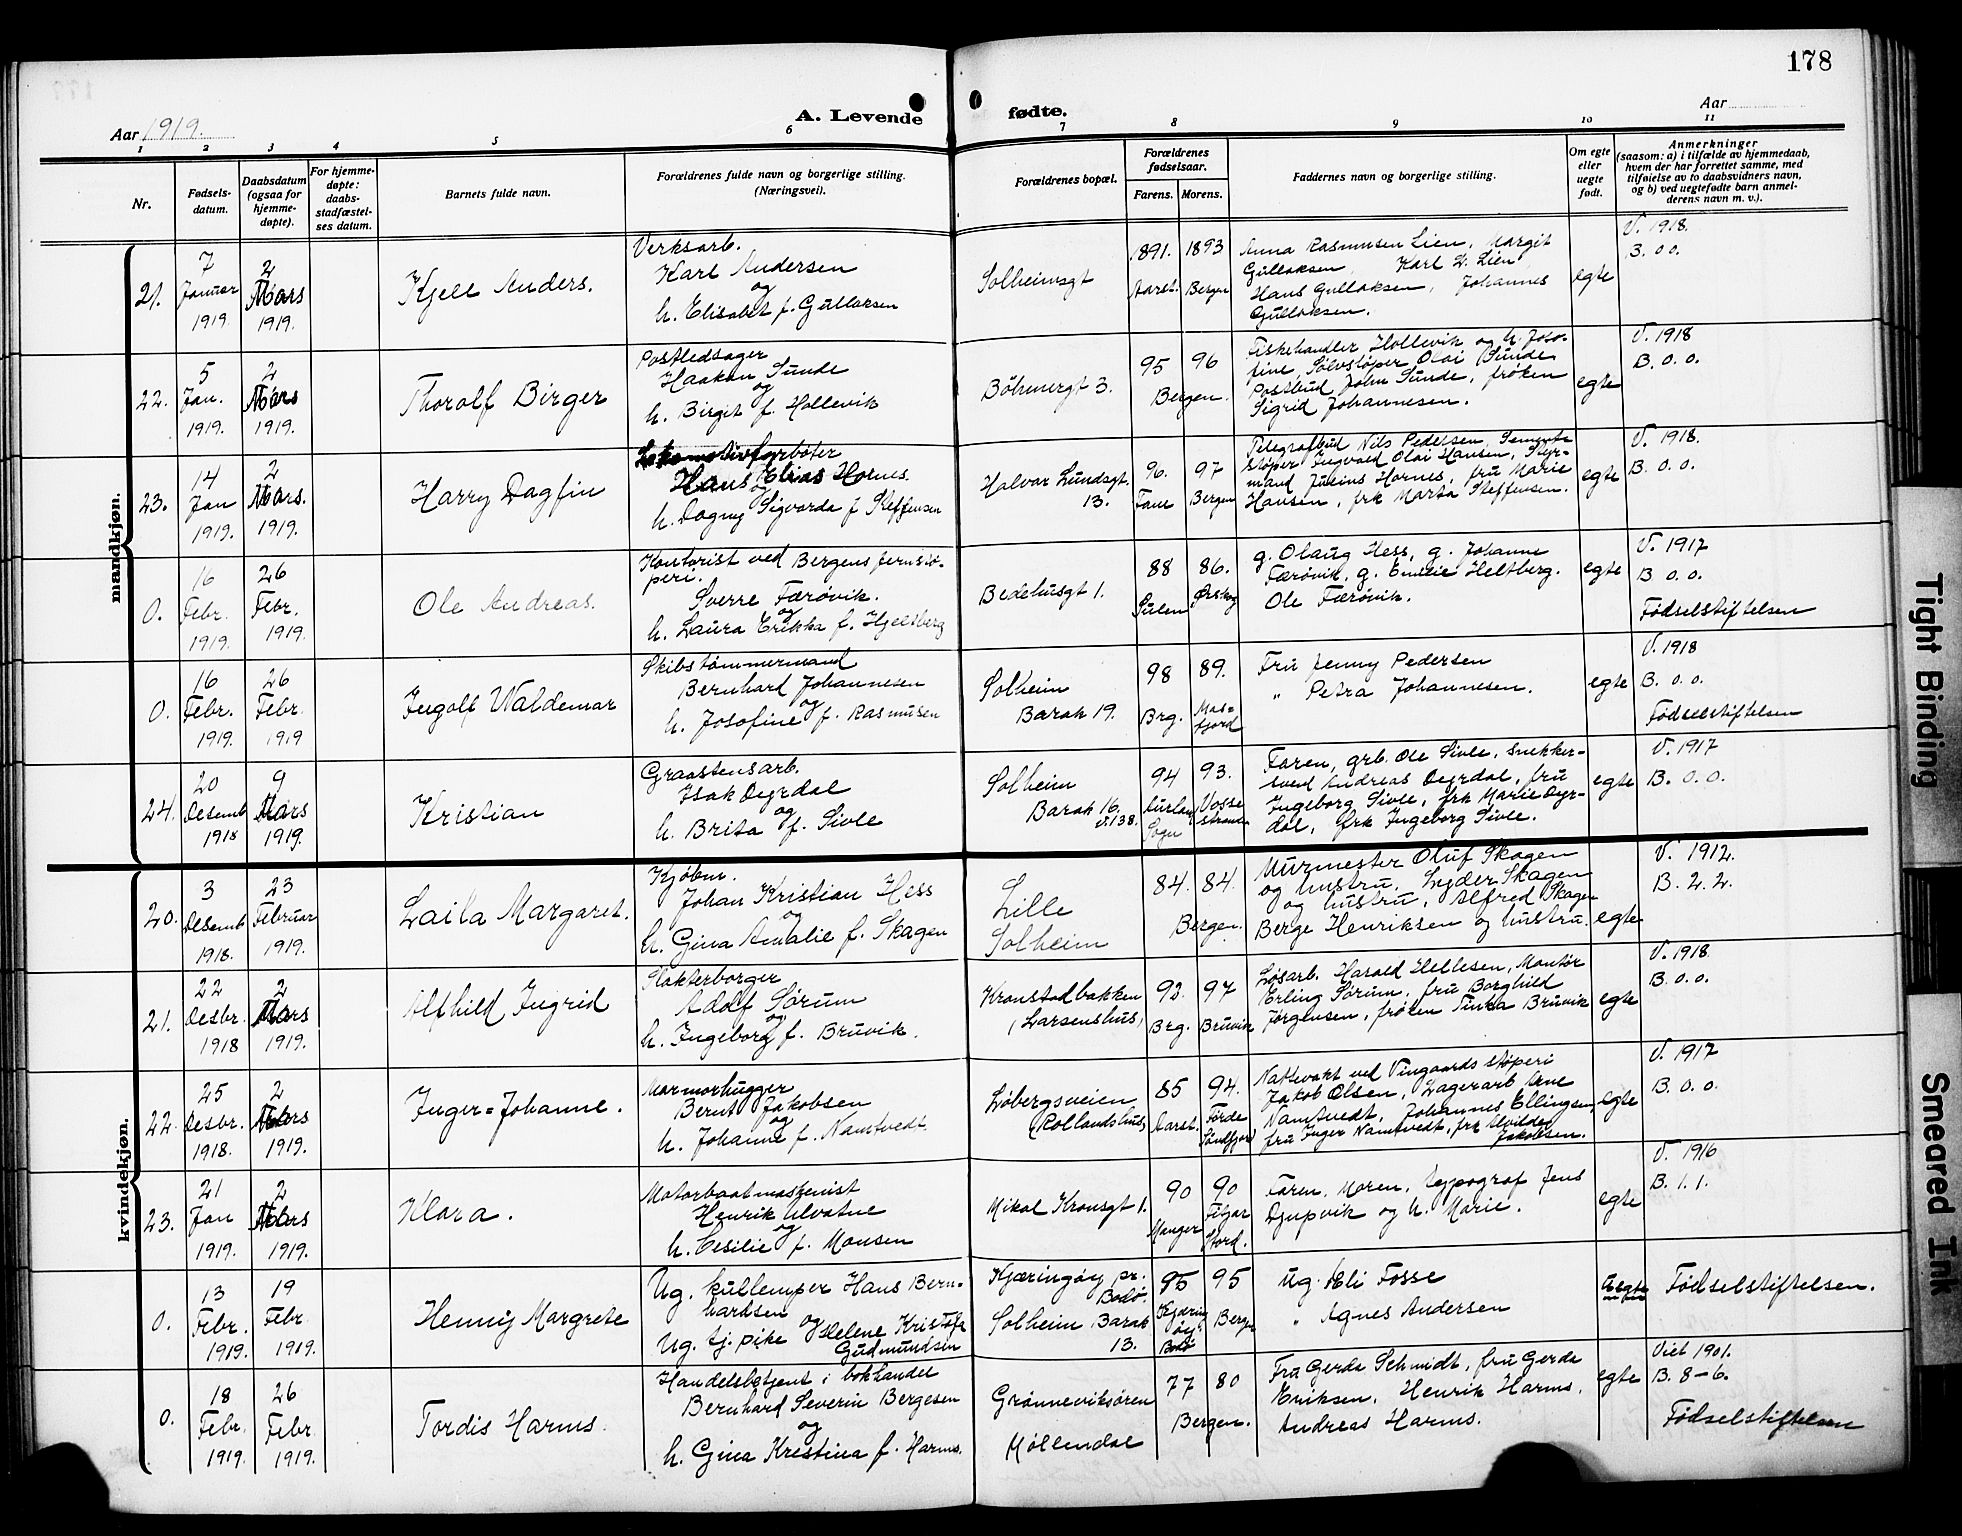 178
Aar 1919.
A. Levende
fødte.
Aar
1
2
3
4
5
6
7
8
9
10
11
Nr.
Fødsels-
datum.
Daabsdatum
(ogsaa for
hjemme-
døpte).
For hjemme-
døpte:
daabs-
stadfæstel-
ses datum.
Barnets fulde navn.
Forældrenes fulde navn og borgerlige stilling.
(Næringsvei).
Forældrenes bopæl.
Forældrenes
fødselsaar.
Farens.
Morens.
Faddernes navn og borgerlige stilling.
Om egte
eller
uegte
født.
Anmerkninger
(saasom: a) i tilfælde av hjemmedaab,
hvem der har forrettet samme, med
tilføielse av to daabsvidners navn,
og b) ved uegtefødte barn anmel-
derens navn m. v.).
mandkjøn.
21.
7
Januar
1919.
2
Mars
1919.
Kjell Anders.
Verksarb.
Karl Andersen
og
h. Elisabet f. Gullaksen
Solheimsgt
1891.
Aarst.
1893
Bergen
Anna Rasmussen Lien, Margit
Gullaksen, Karl L. Lien
Hans Gullaksen, Johannes
Gullaksen.
egte
V. 1918.
B. 0 0.
22.
5
Jan.
1919.
2
Mars
1919.
Thorolf Birger
Postledsager
Haakon Sunde
og
h. Birgit f. Hollevik
Böhmergt 3.
95
96
Bergen.
Fiskehandler Hollevik og h. Joso-
fine, Sølvstøper Olai Sunde
Postbud John Sunde, frøken
Sigrid Johannesen.
egte
V. 1918
B. 0. 0.
23.
14
Jan
1919.
2
Mars.
1919.
Harry Dagfin
Lokomotivfyrbøter
Hans Elias Hornes.
og
h. Dagny Sigvarda f Steffensen
Halvar Lundsgt.
13.
96.
Fane
97
Bergen
Telegrafbud Nils Pedersen, Sement-
støper Ingvald Olai Hansen, Styr-
mand Julius Hornes, fru Marie
Hansen, frk Marta Steffensen.
egte
V. 1918.
B. 0. 0.
0.
16
Febr.
1919.
26
Febr.
1919.
Ole Andreas.
Kontorist ved Bergens jernstø-
peri.
Sverre Færøvik.
og
h. Laura Erikka f. Hjeltberg
Bedehusgt 1.
88
Sulen
86.
Ørskog
g. Olaug Hess, g. Johanne
Færøvik, g. Emilie Heltberg.
Ole Færøvik.
egte
V. 1917
B 0. 0.
Fødselstiftelsen
0.
16
Febr.
1919.
26
Febr.
1919
Ingolf Waldemar
Skibstømmermand
Bernhard Johannesen
og
h. Josofine f. Rasmusen
Solheim
Barak 19.
98
Brg.
89.
Mas-
fjord
Fru Jenny Pedersen
" Petra Johannesen.
egte
V. 1918
B. 0. 0.
Fødselstiftelsen
24.
20
Desemb
1918
9
Mars
1919.
Kristian
Graastensarb.
Isak Dyrdal
og
h. Brita f. Sivle
Solheim
Barak 16.
v. 138.
94
Aurland
Sogn
93.
Vosse
stranden
Faren, grb. Ole Sivle, snekker-
svend Andreas Dyrdal, fru
Ingeborg Sivle, frk Marie Dyr-
dal, frk Ingeborg Sivle.
egte
V. 1917
B. 0. 0.
kvindekjøn.
20.
3
Desemb
1918.
23
Februar
1919.
Laila Margaret.
Kjøbm.
Johan Kristian Hess
og
h. Gina Amalie f. Skagen
Lille
Solheim
84.
84.
Bergen.
Murmester Oluf Skagen
og hustru, Lyder Skagen
og hustru, Alfred Skagen
Berge Henriksen og hustru.
egte
V. 1912.
B. 2. 2.
21.
22
Desbr.
1918
2
Mars
1919.
Alfhild Ingrid
Slakterborger
Adolf Sørum
og
h. Ingeborg f. Bruvik.
Kronstadbakken
(Larsenshus)
93.
Brg.
97
Bruvik
Løsarb. Harald Hellesen, Montør
Erling Sørum, fru Borghild
Jørgensen, frøken Tinka Bruvik
egte
V. 1918
B. 0. 0.
22.
25
Desbr.
1918.
2
Mars
1919.
Inger=Johanne.
Marmorhugger
Bernt Jakobsen
og
h. Johanne f. Namtvedt.
Løbergsveien
(Rollandshus)
85
Aarst.
94.
Førde
Søndfjord
Nattevakt ved Vingaards støperi
Jakob Olsen, Lagerarb Arne
Namtvedt, Johannes Ellingsen,
fru Inger Namtvedt, frk Alvilde
Jakobsen.
egte
V. 1917
B. 0. 0.
23.
21
Jan
1919.
2
Mars
1919.
Klara.
Motorbaatmaskinist
Henrik Ulvatne
og
h. Cesilie f. Monsen
Mikal Kronsgt 1.
90
Manger
90
Fitjar
Stord.
Faren, Moren, typograf Jens
Djupvik og h. Marie.
egte
V. 1916
B. 1. 1.
0.
13
Febr.
1919.
19
Febr.
1919.
Henny Margrete
Ug. kullemper Hans Bern-
hardsen
og
Ug. tj. pike Helene Kristofa
Gudmundsen
Kjæringøy pr.
Bodø.
Solheim Barak
13.
95
Kjæring
øy
Bodø
95
Bergen
Ug. Eli Fosse
" Agnes Andersen
uegte
Fødselstiftelsen.
0.
18
Febr.
1919.
26
Febr.
1919.
Tordis Harms.
Handelsbetjent i bokhandel
Bernhard Severin Bergesen
og
h. Gina Kristina f. Harms.
Grønneviksøren
Møllendal
77
80
Bergen.
Fru Gerda Schmidt, fru Gerda
Eriksen, Henrik Harms,
Andreas Harms.
egte
Viet 1901.
B. 8-6.
Fødselstiftelsen
Tight Binding
Smeared Ink